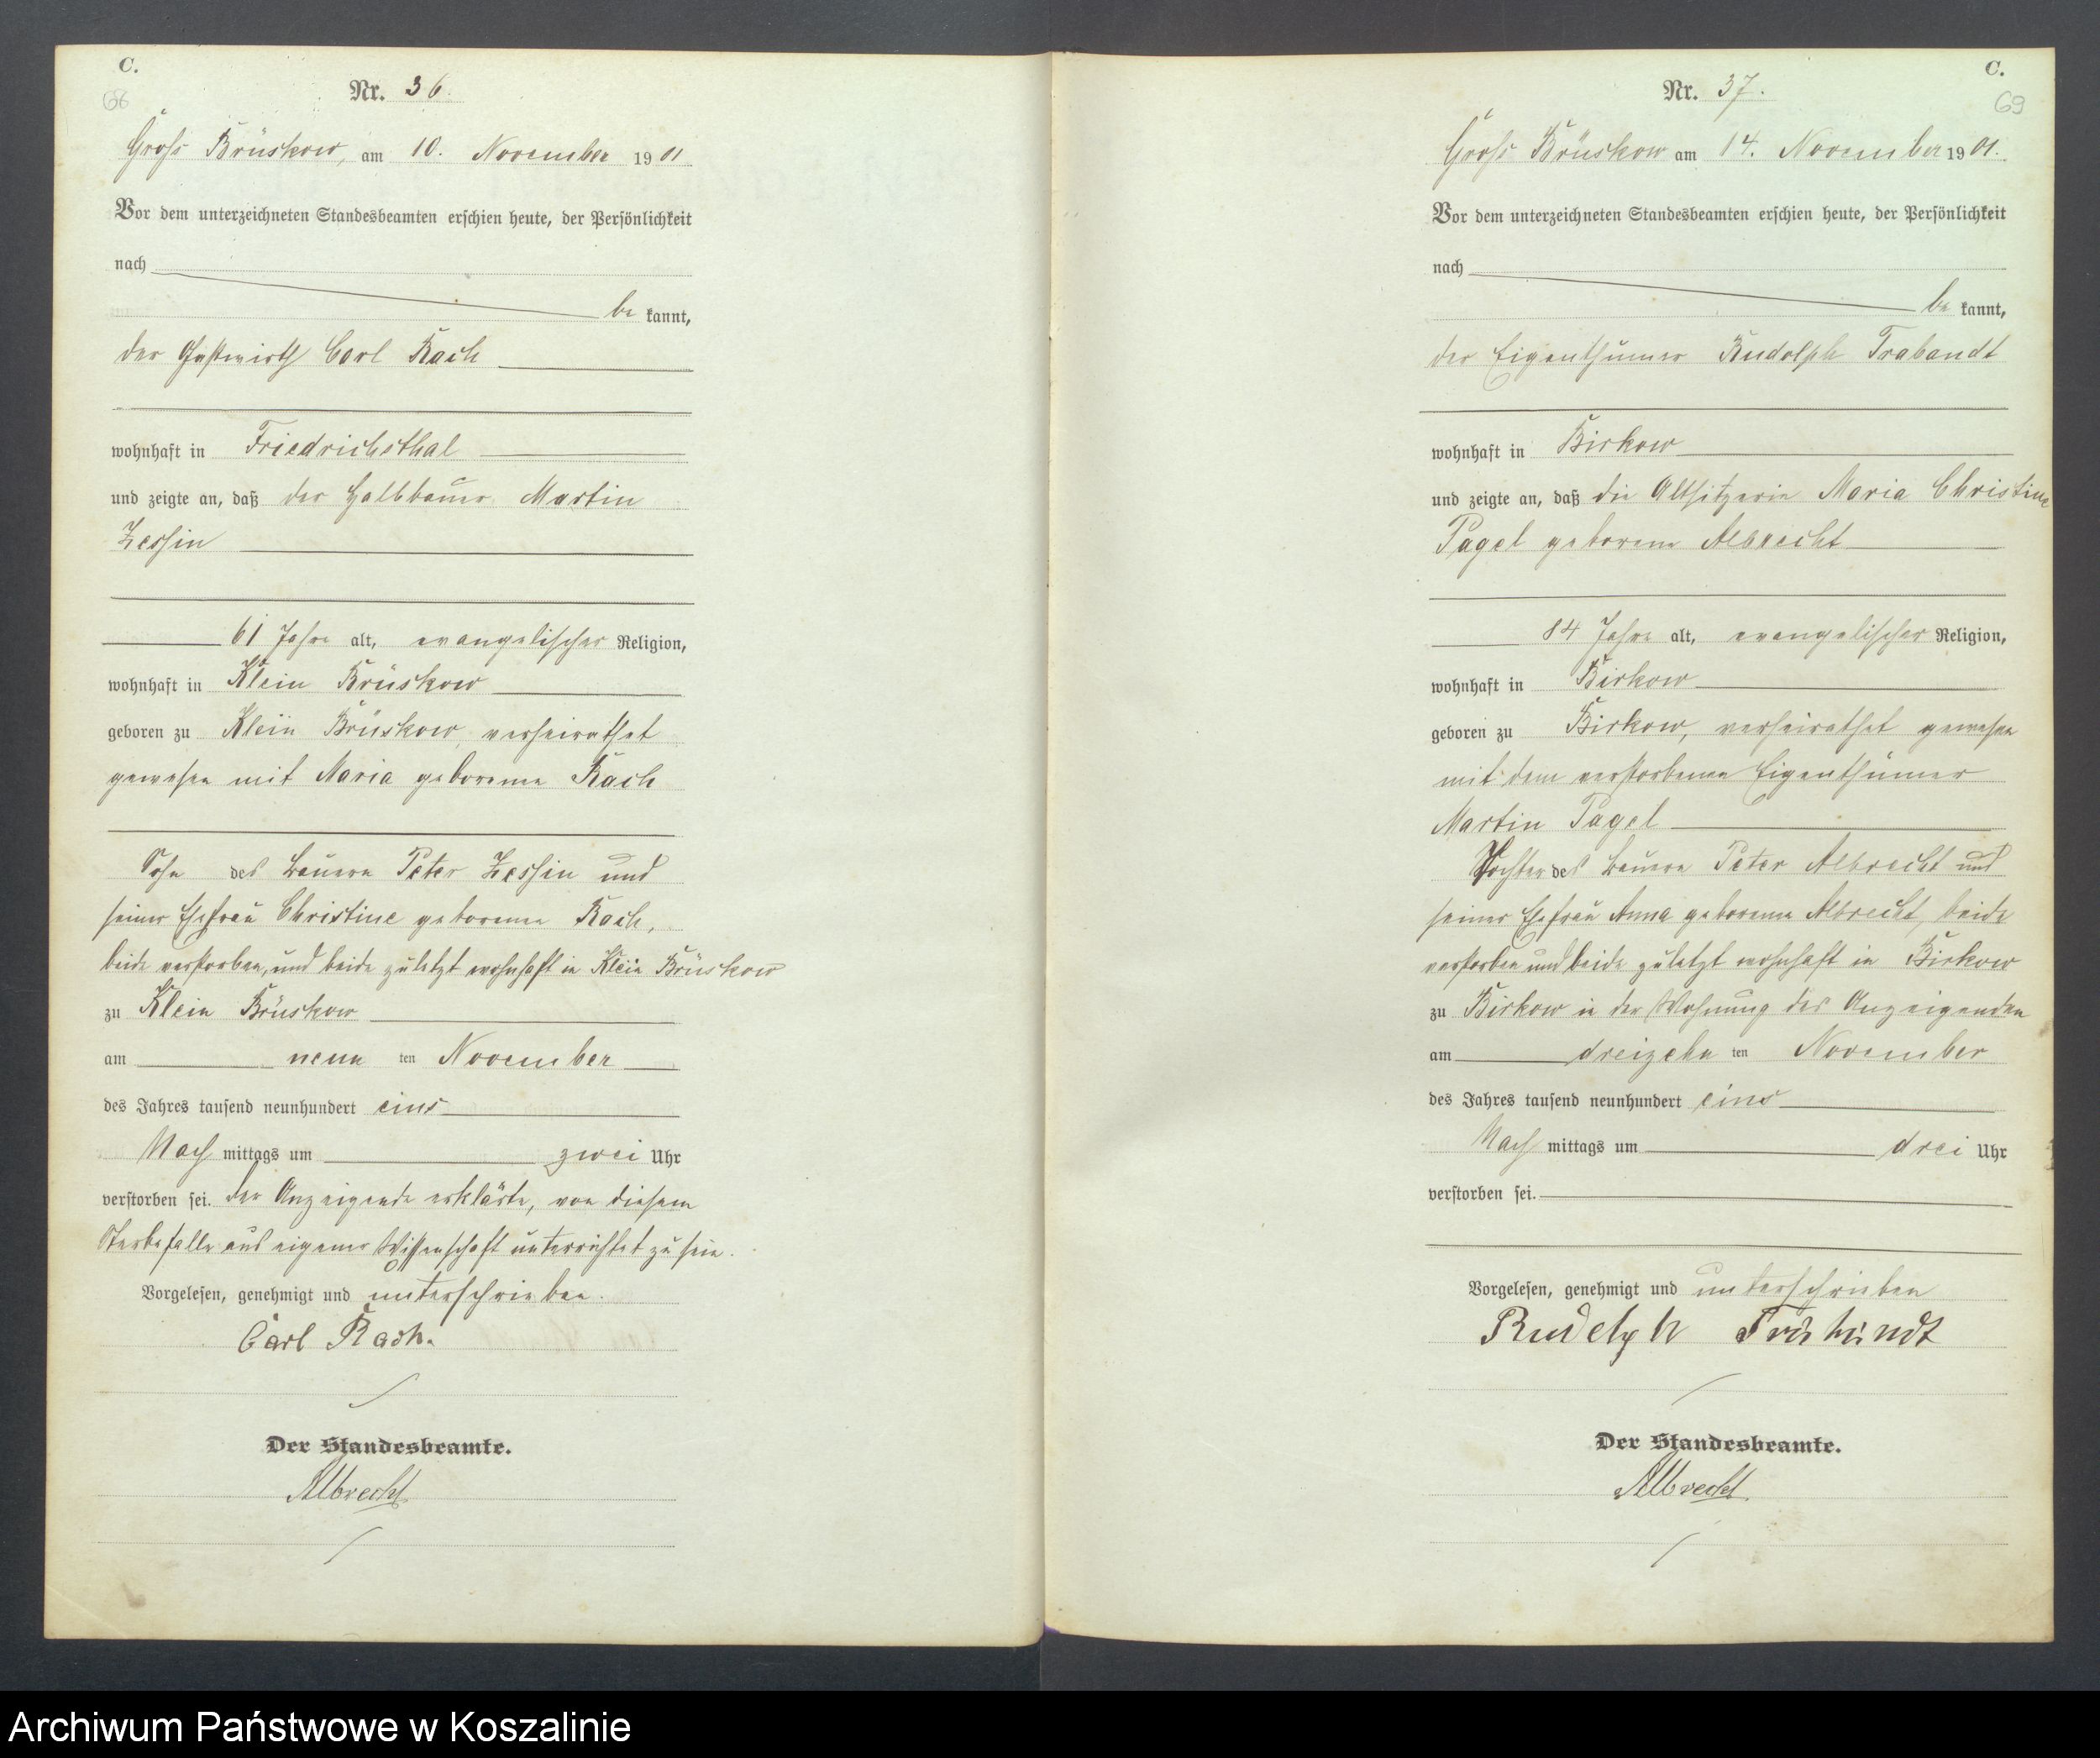 C.
68
Nr. 36.
Gross Brüskow, am 10. November 1901
Vor dem unterzeichneten Standesbeamten erschien heute, der Persönlichkeit
nach
be kannt,
der Gastwirth Carl Rach
wohnhaft in Friedrichsthal
und zeigte an, daß der Halbbauer Martin
Zessin
61 Jahre alt, evangelischer Religion,
wohnhaft in Klein Brüskow
geboren zu Klein Brüskow, verheirathet
gewesen mit Maria geborene Rach
Sohn des Bauern Peter Zessin und
seiner Ehefrau Christine geborene Rach,
beide verstorben, und beide zuletzt wohnhaft in Klein Brüskow
zu Klein Brüskow
am neun ten November
des Jahres tausend neunhundert eins
Nach mittags um zwei Uhr
verstorben sei. Der Anzeigende erklärte, von diesem
Sterbefalle aus eigener Wissenschaft unterrichtet zu sein.
Vorgelesen, genehmigt und unterschrieben.
Carl Rach.
Der Standesbeamte.
Albrecht
C.
69
Nr. 37.
Gross Brüskow am 14. November 1901.
Vor dem unterzeichneten Standesbeamten erschien heute, der Persönlichkeit
nach
be kannt,
der Eigenthümer Rudolph Trabandt
wohnhaft in Birkow
und zeigte an, daß die Altsitzerin Maria Christine
Pagel geborene Albrecht
84 Jahre alt, evangelischer Religion,
wohnhaft in Birkow
geboren zu Birkow, verheirathet gewesen
mit dem verstorbenen Eigenthümer
Martin Pagel
Tochter des Bauern Peter Albrecht und
seiner Ehefrau Anna geborene Albrecht, beide
verstorben und beide zuletzt wohnhaft in Birkow
zu Birkow in der Wohnung des Anzeigenden
am dreizehn ten November
des Jahres tausend neunhundert eins
Nach mittags um drei Uhr
verstorben sei.
Vorgelesen, genehmigt und unterschrieben
Rudolph Trabandt
Der Standesbeamte.
Albrecht
Archiwum Państwowe w Koszalinie